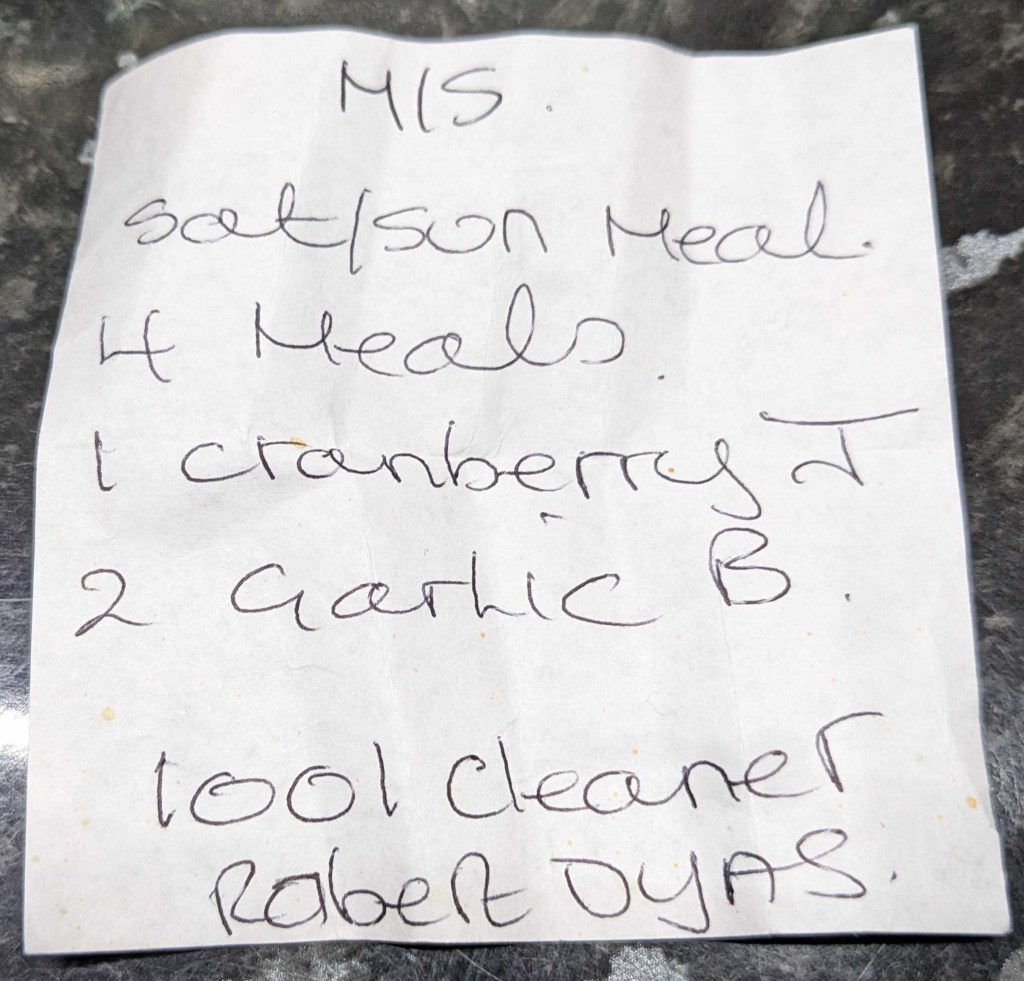 M/S.
Sat/Sun Meal.
4 Meals.
1 Cranberry J
2 Garlic B.
1001 Cleaner
Robert DYAS.